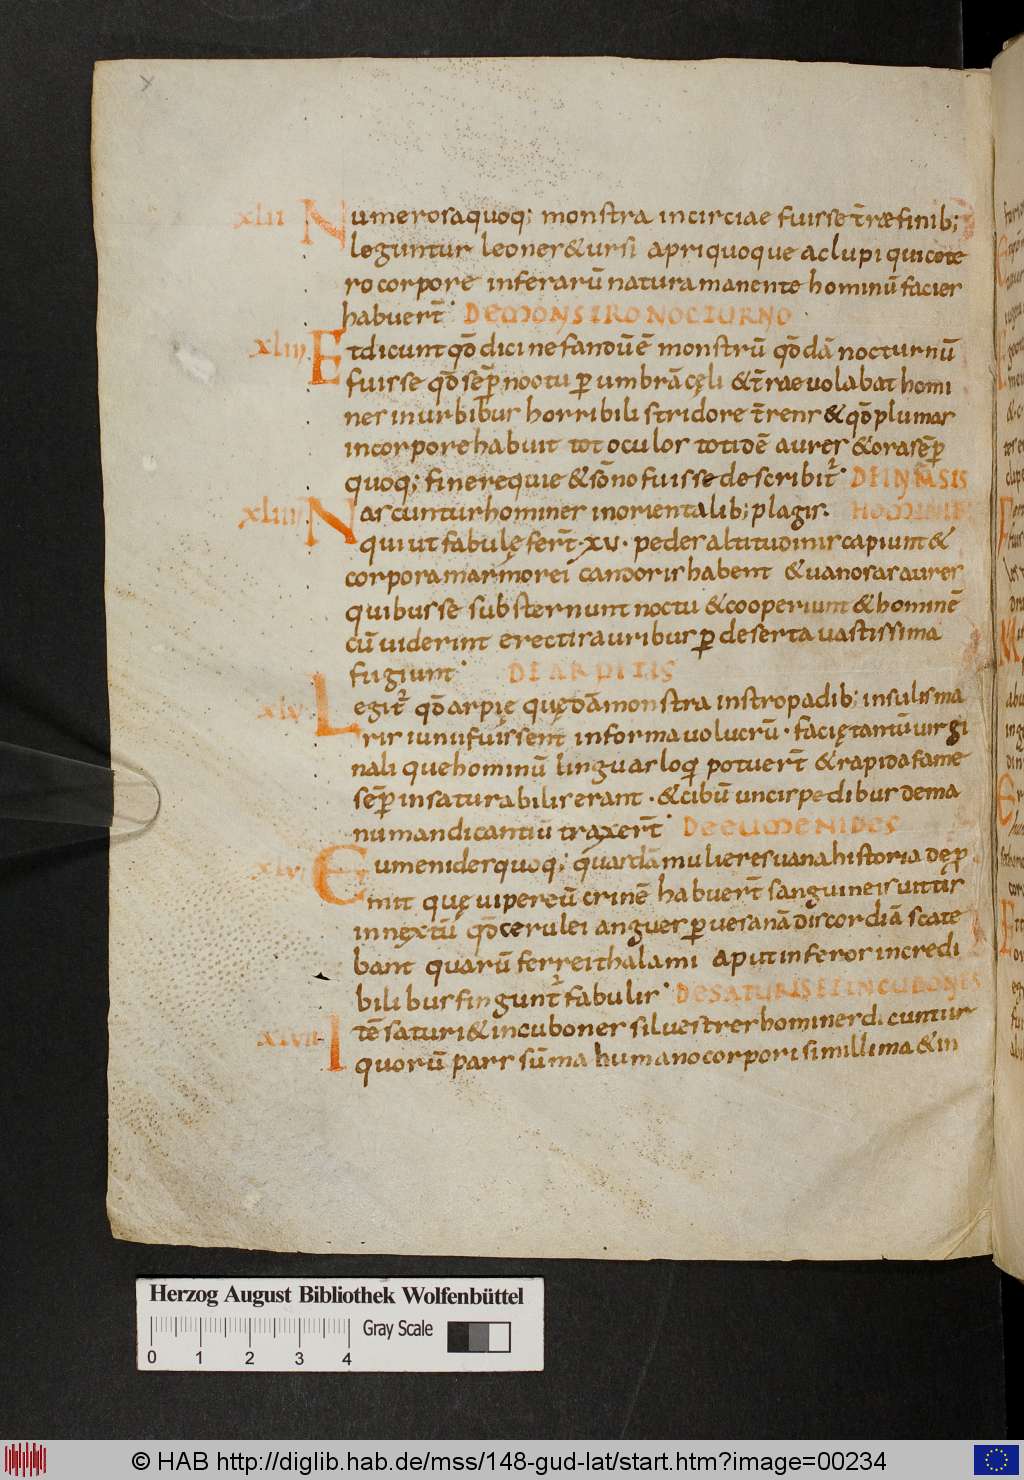 xlii Numerosaquoq; monstra incirciae fuisse t̄ræ finib;
leguntur leones & ursi apri quoque ac lupi qui cete
ro corpore in ferarū natura manente hominū facies
habuer̄t DEMONSTRO NOCTURNO
xliii Et dicunt qd̄ dici nefandū ē monstrū qd̄ā nocturnū
fuisse qd̄ sēp noctu p umbrā cęli & t̄rae volabat homi
nes in urbibus horribili stridore t̄rens & qd̄ plumas
in corpore habuit tot oculos totidē aures & ora sēp
quoq; sine requie & sōno fuisse describit̄ DE INMSIS
xliiii Nascuntur homines in orientalib; plagis. HOMINIB
qui ut fabulę fer̄t · xv · pedes altitudinis capiunt &
corpora marmorei candoris habent & vanosas aures
quibus se substernunt noctu & cooperiunt & hominē
cū viderint erectis auribus p deserta vastissima
fugiunt DE ARPIIS
xlv Legit̄ qd̄ arpię quędā monstra in stropadib; insulis ma
ris iunii fuissent in forma volucrū · facię tantū virgi
nali que hominū linguas loqi potuer̄t & rapida fame
sēp insaturabilis erant · & cibū uncis pedibus de ma
nu mandicantiū traxer̄t DE EUMENIDES
xlvi Eumenides quoq; quasdā mulieres vana historia dēp
mit quę vipereū crinē habuer̄t sanguineis vittis
innextū qd̄ cerulei angues p vesanā discordiā scate
bant quarū ferrei thalami aput inferos incredi
bilibus fingunt̄ fabulis DE SATURIS ET INCUBONES
xlvii Itē saturi & incubones silvestres homines dicuntur
quorū pars sūma humano corpori simillima & in
Herzog August Bibliothek Wolfenbüttel
Gray Scale
0 1 2 3 4
© HAB http://diglib.hab.de/mss/148-gud-lat/start.htm?image=00234